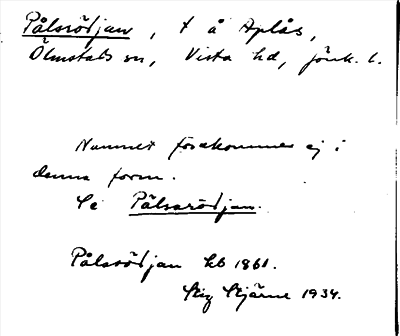 Pålsrödjan, t å Aplås,
Ölmstads sn, Vista hd, Jönk. l.
Namnet förekommer ej i
denna form.
Se Pålsarödjan.
Pålsrödjan kb 1861.
Stig Stjärne 1934.